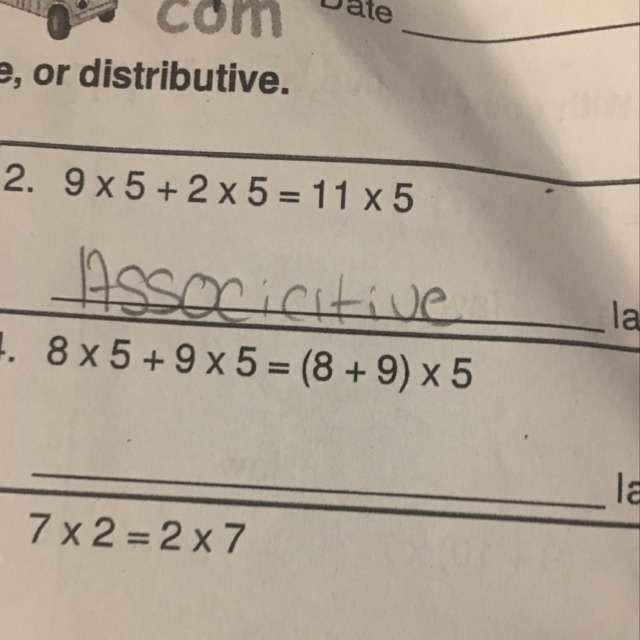 com Date
e, or distributive.
2. 9 x 5 + 2 x 5 = 11 x 5
Associcitive la
. 8 x 5 + 9 x 5 = (8 + 9) x 5
la
7 x 2 = 2 x 7